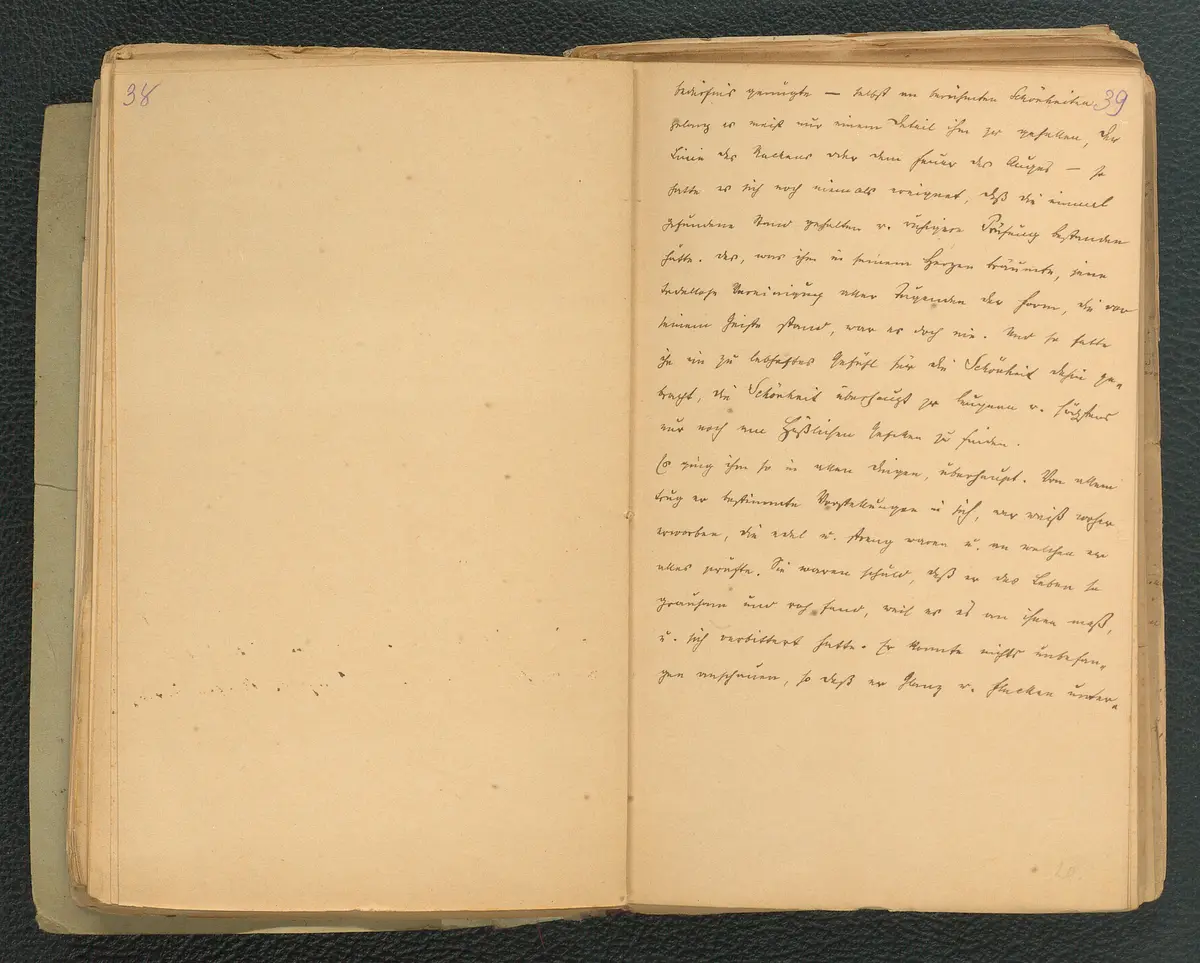 38
39
bedürfnis genügte — selbst an berühmten Schönheiten
gelang es meist nur einem Detail ihm zu gefallen, der
Linie des Nackens oder dem Feuer des Auges — so
hatte es sich noch niemals ereignet, daß die einmal
gefundene Stand gehalten u. ruhigere Prüfung bestanden
hätte. Das, was ihm in seinem Herzen träumte, jene
tadellose Vereinigung aller Tugenden der Form, die vor
seinem Geiste stand, war es doch nie. Und so hatte
ihn ein zu lebhaftes Gefühl für die Schönheit dahin ge-
bracht, die Schönheit überhaupt zu leugnen u. höchstens
nur noch am Häßlichen Gefallen zu finden.
Es ging ihm so in allen Dingen, überhaupt. Von allem
trug er bestimmte Vorstellungen in sich, wer weiß woher
erworben, die edel u. streng waren u. an welchen er
alles prüfte. Sie waren schuld, daß er das Leben so
grausam und roh fand, weil er es an ihnen maß,
u. sich verbittert hatte. Er konnte nichts unbefan-
gen anschauen, so daß er Glanz u. Flecken unter-